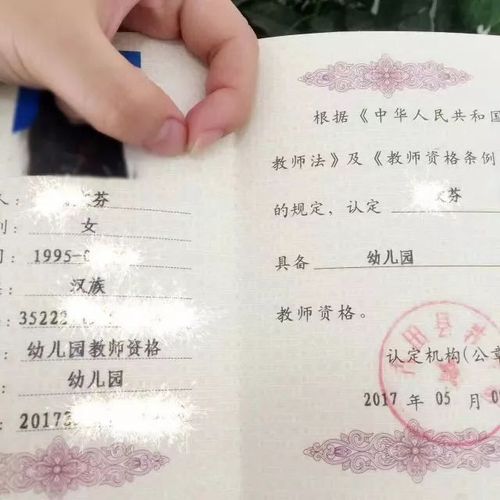 人： 芬
别： 女
1995-0
汉族
35222
幼儿园教师资格
幼儿园
20173
根据《中华人民共和国
教师法》及《教师资格条例
的规定，认定 芬
具备 幼儿园
教师资格。
田县
认定机构(公章
2017 年 05 月 0